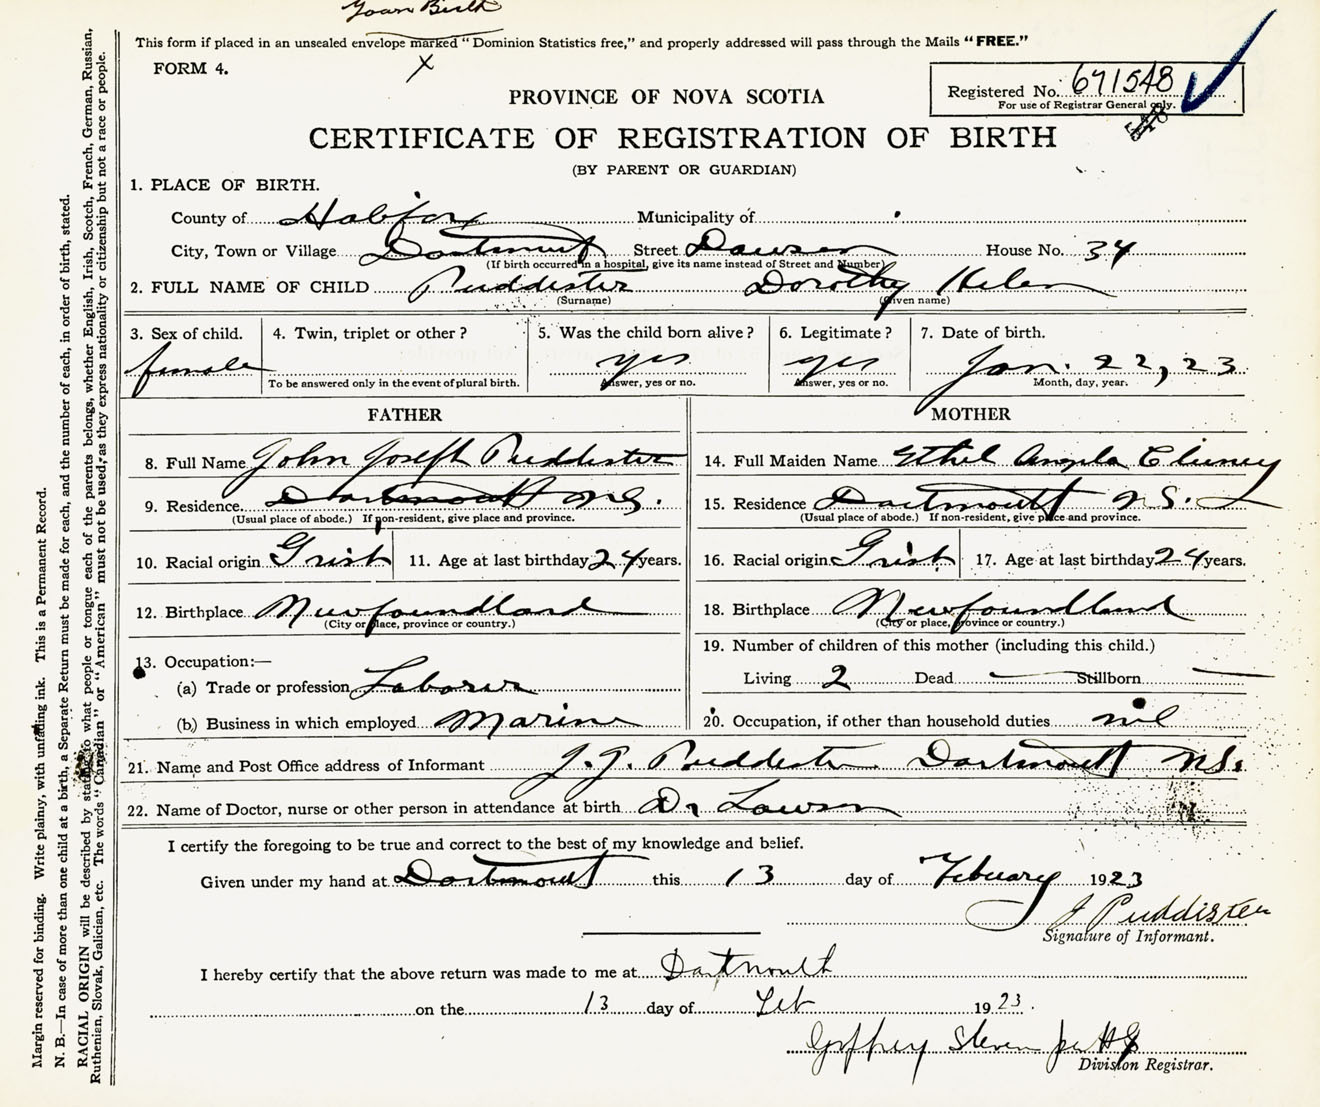 Birth
This form if placed in an unsealed envelope marked "Dominion Statistics free," and properly addressed will pass through the Mails "FREE."
X
FORM 4.
Registered No. 671548
For use of Registrar General only.
548
PROVINCE OF NOVA SCOTIA
CERTIFICATE OF REGISTRATION OF BIRTH
(BY PARENT OR GUARDIAN)
1. PLACE OF BIRTH.
County of Halifax Municipality of
City, Town or Village Dartmouth Street Dawson House No. 34
(If birth occurred in a hospital, give its name instead of Street and Number)
2. FULL NAME OF CHILD Puddister Dorothy Helen
(Surname) (Given name)
3. Sex of child. 4. Twin, triplet or other? 5. Was the child born alive? 6. Legitimate? 7. Date of birth.
female yes yes Jan. 22, 23
To be answered only in the event of plural birth. Answer, yes or no. Answer, yes or no. Month, day, year.
FATHER
8. Full Name John Joseph Puddister
9. Residence. Dartmouth N.S.
(Usual place of abode.) If non-resident, give place and province.
10. Racial origin Irish 11. Age at last birthday 24 years.
12. Birthplace Newfoundland
(City or place, province or country.)
13. Occupation:—
(a) Trade or profession Laborer
(b) Business in which employed Marine
MOTHER
14. Full Maiden Name Ethel Angela Cluney
15. Residence Dartmouth N.S.
(Usual place of abode.) If non-resident, give place and province.
16. Racial origin Irish 17. Age at last birthday 24 years.
18. Birthplace Newfoundland
(City or place, province or country.)
19. Number of children of this mother (including this child.)
Living 2 Dead — Stillborn —
20. Occupation, if other than household duties nil
21. Name and Post Office address of Informant J. J. Puddister Dartmouth N.S.
22. Name of Doctor, nurse or other person in attendance at birth Dr Lawson
I certify the foregoing to be true and correct to the best of my knowledge and belief.
Given under my hand at Dartmouth this 13 day of Febuary 1923
J Puddister
Signature of Informant.
I hereby certify that the above return was made to me at Dartmouth
on the 13 day of Feb 1923.
Steven per
Division Registrar.
Margin reserved for binding. Write plainy, with unfading ink. This is a Permanent Record.
N. B.—In case of more than one child at a birth, a Separate Return must be made for each, and the number of each, in order of birth, stated.
RACIAL ORIGIN will be described by stating to what people or tongue each of the parents belongs, whether English, Irish, Scotch, French, German, Russian,
Ruthenian, Slovak, Galician, etc. The words "Canadian" or "American" must not be used, as they express nationality or citizenship but not a race or people.